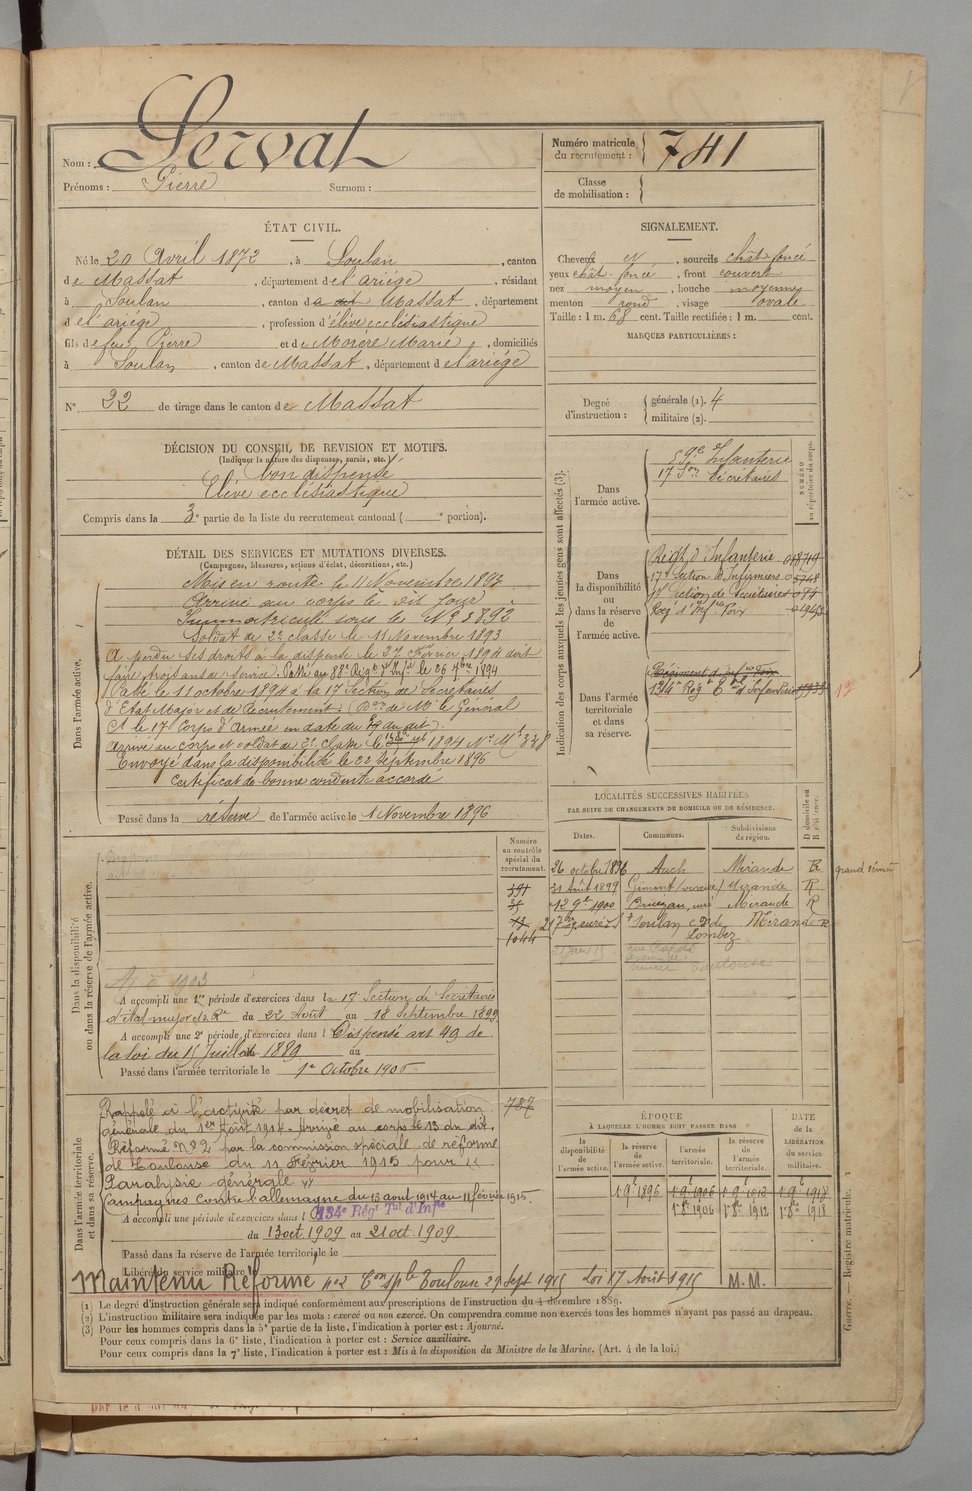 Nom : Servat
Prénoms : Pierre Surnom :
Numéro matricule du recrutement : 741
Classe de mobilisation :
ÉTAT CIVIL.
Né le 20 Avril 1872, à Soulan, canton
de Massat, département de l'ariége, résidant
à Soulan, canton de Massat, département
de l'ariége, profession d'élève ecclésiastique
fils de feu Pierre et de Morère Marie, domiciliés
à Soulan, canton de Massat, département de l'ariége
N° 22 de tirage dans le canton de Massat
SIGNALEMENT.
Cheveux N, sourcils chât-foncé
yeux chât-foncé, front couvert
nez moyen, bouche moyenne
menton rond, visage ovale
Taille : 1 m. 68 cent. Taille rectifiée : 1 m. cent.
MARQUES PARTICULIÈRES :
Degré d'instruction : générale (1). 4
militaire (2).
DÉCISION DU CONSEIL DE REVISION ET MOTIFS.
(Indiquer la nature des dispenses, sursis, etc.)
bon dispensé
Elève ecclésiastique
Compris dans la 3e partie de la liste du recrutement cantonal ( e portion).
DÉTAIL DES SERVICES ET MUTATIONS DIVERSES.
(Campagnes, blessures, actions d'éclat, décorations, etc.)
Dans l'armée active.
Mis en route le 11 Novembre 1893
Arrivé au corps le dit jour
Immatriculé sous le N° 3892
Soldat de 2e classe le 11 Novembre 1893
A perdu ses droits à la dispense le 27 Février 1894 doit
faire trois ans de service. Passé au 88e Régt d'Infie le 26 7bre 1894
Passé le 11 octobre 1894 à la 17e Section de Secrétaires
d'Etat Major et de Recrutement. (Don de Mr le Général
Ct le 17e Corps d'Armée en date du dudit)
Arrivé au corps et soldat de 2e classe le 1894 No Ml 328
Envoyé dans la disponibilité le 22 Septembre 1896
Certificat de bonne conduite accordé
Passé dans la réserve de l'armée active le 1 Novembre 1896
Indication des corps auxquels les jeunes gens sont affectés (3).
NUMÉRO au répertoire du corps.
Dans l'armée active.
59e d'Infanterie
17e Son Secrétaires
Dans la disponibilité ou dans la réserve de l'armée active.
Regt d'Infanterie 018719
17e Section d'Infirmiers 05748
17e Section de Secrétaires 084
Reg d'Inf Foix 01943
Dans l'armée territoriale et dans sa réserve.
Régiment d'Inf Foix
134e Régt Tal d'Infanterie 13
LOCALITÉS SUCCESSIVES HABITÉES
PAR SUITE DE CHANGEMENTS DE DOMICILE OU DE RÉSIDENCE.
Dates. Communes. Subdivisions de région. D domicile ou R résidence.
26 octobre 1896 Auch Mirande R grand sémin
31 Août 1899 Gimont (vicaire) Mirande R
12 9bre 1900 Mirande R
curé St Soulan cn de Lombez Mirande R
Toulouse
Numéro au contrôle spécial du recrutement.
391
1044
787
Dans la disponibilité ou dans la réserve de l'armée active.
1903
A accompli une 1re période d'exercices dans la 17e Section de Secrétaires
d'état major et de Rt du 22 Août au 18 Septembre 1899
A accompli une 2e période d'exercices dans l Dispensé art 49 de
la loi du 15 Juillet 1889 au
Passé dans l'armée territoriale le 1er Octobre 1906
Dans l'armée territoriale et dans sa réserve.
Rappelé à l'activité par décret de mobilisation
générale du 1er Août 1914. Arrivé au corps le 13 du dit.
Réformé N° 2 par la commission spéciale de réforme
de Toulouse du 11 Février 1915 pour "
Paralysie générale "
Campagnes contre l'allemagne du 13 aout 1914 au 11 février 1915.
A accompli une période d'exercices dans l 134e Régt Tal d'Infie
du 13 oct. 1909 au 21 oct. 1909
Passé dans la réserve de l'armée territoriale le
Libéré du service militaire le
Maintenu Réformé no2 Con sple Toulouse 29 Sept 1915 Loi 17 Août 1915 M.M.
ÉPOQUE
À LAQUELLE L'HOMME DOIT PASSER DANS
la disponibilité de l'armée active. la réserve de l'armée active. l'armée territoriale. la réserve de l'armée territoriale.
DATE de la LIBÉRATION du service militaire.
1 9e 1896 1 9e 1906 1 9e 1912 1 9e 1918
1er 8e 1906 1er 8e 1912 1er 8e 1918
(1) Le degré d'instruction générale sera indiqué conformément aux prescriptions de l'instruction du 4 décembre 1889.
(2) L'instruction militaire sera indiquée par les mots : exercé ou non exercé. On comprendra comme non exercés tous les hommes n'ayant pas passé au drapeau.
(3) Pour les hommes compris dans la 5e partie de la liste, l'indication à porter est : Ajourné.
Pour ceux compris dans la 6e liste, l'indication à porter est : Service auxiliaire.
Pour ceux compris dans la 7e liste, l'indication à porter est : Mis à la disposition du Ministre de la Marine. (Art. 4 de la loi.)
Guerre. — Registre matricule.